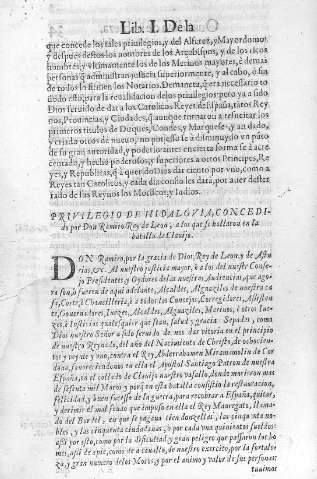 Lib. I. De la
que concede los tales privilegios, y del Alferez, y Mayordomo:
y despues destos los nombres de los Arçobispos, y de los ricos
hombres y ultimamente los de los Merinos mayores, è demas
personas q̃ administran justicia superiormente, y al cabo, ò fin
de todos lo firmen los Notarios. Demanera, q̃ era necessario to
do esto, para la realidad de los privilegios: pero ya a sido
Dios servido de dar a los Catolicos Reyes de España, tãtos Rey
nos, Provincias, y Ciudades, q̃ aunque tornaron a resucitar los
primeros titulos de Duques, Condes, y Marqueses, y an dado,
y criado otros de nuevo; no por esso se à disminuydo un pũto
de su gran autoridad, y poder; antes en cierta forma se à acre
centado, y hecho poderosos, y superiores a otros Principes, Re
yes, y Republicas, q̃ à querido Dios dar ciento por uno, como a
Reyes tan Catolicos, y cada dia con
rado de sus Reynos los Moriscos, y Indios.
PRIVILEGIO DE HIDALGVIA, CONCEDI-
do por Don Ramiro Rey de Leon, a los que se hallaron en la
batalla de Clavijo.
DON Ramiro, por la gracia de Dios, Rey de Leon, y de Astu
rias, &c. Al nuestro justicia mayor, è a los del nuestro Conse
jo Presidentes y Oydores de las nuestras Audiencias, que ago
ra son, ò fueren de aqui adelante, Alcaldes, Alguaziles de nuestra ca
sa, Corte, è Chancilleria, è a todos los Consejos, Corregidores, Assisten
tes, Governadores, Iuezes, Alcaldes, Alguaziles, Merinos, è otros Iue
zes, è Iusticias qualesquier que sean, salud y gracia. Sepades, como
Dios nuestro Señor a sido servido de me dar vitoria en el principio
de nuestro Reynado, del año del Nacimiento de Christo, de ochocien-
tos y veynte y uno, contra el Rey Abderrahamen Miramamolin de Cor
dova, favoreciendonos en ella el Apostol Santiago Patron de nuestra
España, en el collado de Clavijo nuestro vassallo, donde murieron mas
de setenta mil Moros: y porq̃ en esta batalla consistio la restauracion,
felicidad, y buen sucesso de la guerra, para recobrar a España, quitar,
y derimir el mal feudo que impuso en ella el Rey Mauregato, llama-
do del Burdel, en que le pagavan cien donzellas, las cinquenta no-
bles, y las cinquenta ciudadanas, è por cada una quinientos sueldos:
assi por esto, como por la dificultad y gran peligro que passaron los ho
mes, assi de apie, como de a cavallo, de nuestro exercito, por la fortale-
za, y gran numero de los Moros, y por el animo y valor de sus personas
tuvimos